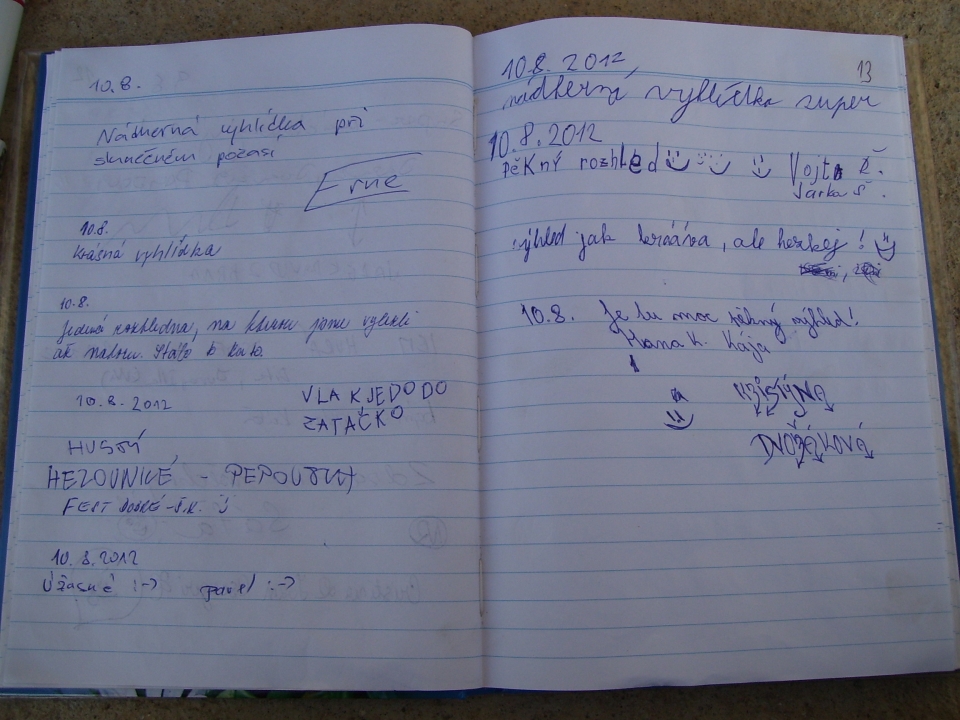 10.8.
Nádherná vyhlídka při
slunéčném počasí
Erne
10.8.
Krásná vyhlídka
10.8.
Jediná rozhledna, na kterou jsme vylezli
až nahoru. Stálo to za to.
10.8.2012
VLAK JEDODO
ZATAČKO
HUSTÝ
HEZOUNICKÉ - PEPOUŠKA
FEST DOBRÉ
10.8.2012
Úžasné :-) pavel :-)
13
10.8.2012,
nádherná vyhlídka super
10.8.2012
PěKný rozhled Vojta Š.
Jarka Š.
výhled jak kráva, ale hezkej!
10.8. Je tu moc pěkný výhled!
Hana K. Kája
KRISTÝNA
DVOŘÁKOVÁ